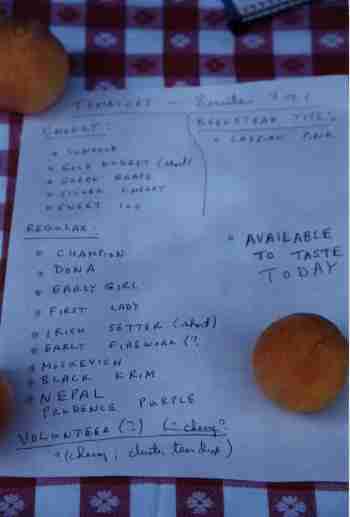 TOMATOES -
CHERRY:
SUNGOLD
GOLD NUGGET (short)
JULIET GRAPE
SWEET 100
BEEFSTEAK TYPE:
CASPIAN PINK
REGULAR:
CHAMPION
DONA
EARLY GIRL
FIRST LADY
IRISH SETTER (short)
EARLY FIREWORK (?
MOSKEVICH
BLACK KRIM
NEPAL
PRUDENCE PURPLE
* AVAILABLE
TO TASTE
TODAY
VOLUNTEER (?) (= cherry?